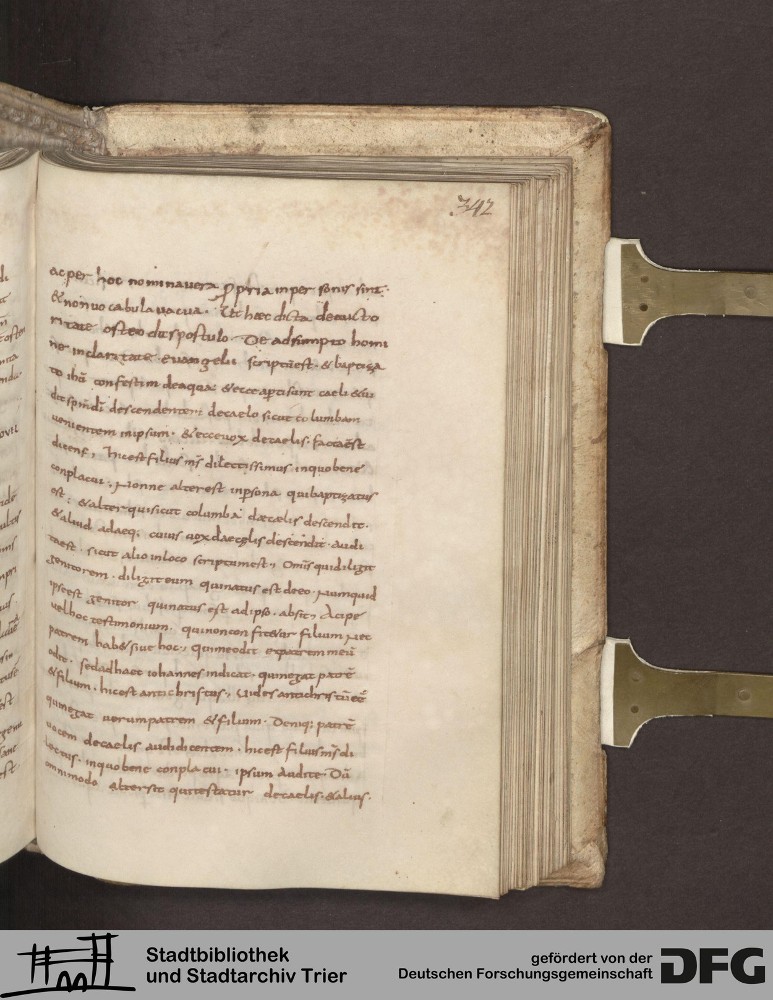 342
ac per hoc nomina vera ꝓpria in per sonis sint.
& non vocabula vacua. Ut haec dicta de cucto
ritate osteo dit postulo De adsumpto homi
ne in claritate evangelii scriptū est. & baptiza
to ihū confestim de aqua: & ecce apti sunt caeli & vi
dit spm di descendentem de caelo sicut columbam
venientem in ipsum. & ecce vox de caelis. facta est
dicens, hic est filius ms dilectissimus in quo bene
conplacui. Nonne alter est in psona qui baptizatus
est: & alter qui sicut columba de caelis descendit.
& aliud adaeq; cuius vox de caelis descendit. Audi
sicut alio in loco scriptum est, Omis qui diligit
genitorem. diligit eum qui natus est de eo. Numquid
ipse est genitor qui natus est ad ipso. absit, Acipe
vel hoc testimonium. qui non confitetur filium nec
patrem habet sive hoc, qui me odit et patrem meū
odit. sed ad haec iohannes indicat. qui negat patrē
& filium. hic est antichristus, Vides antichristū eē
qui negat verum patrem & filium. Deniq; patrē
vocem de caelis audi dicentem. hic est filius ms di
lectus. in quo bene conplacui. ipsum audite. Dū
omnimodo alter sit qui testatur de caelis. & alius.
Stadtbibliothek
und Stadtarchiv Trier
gefördert von der
Deutschen Forschungsgemeinschaft
DFG